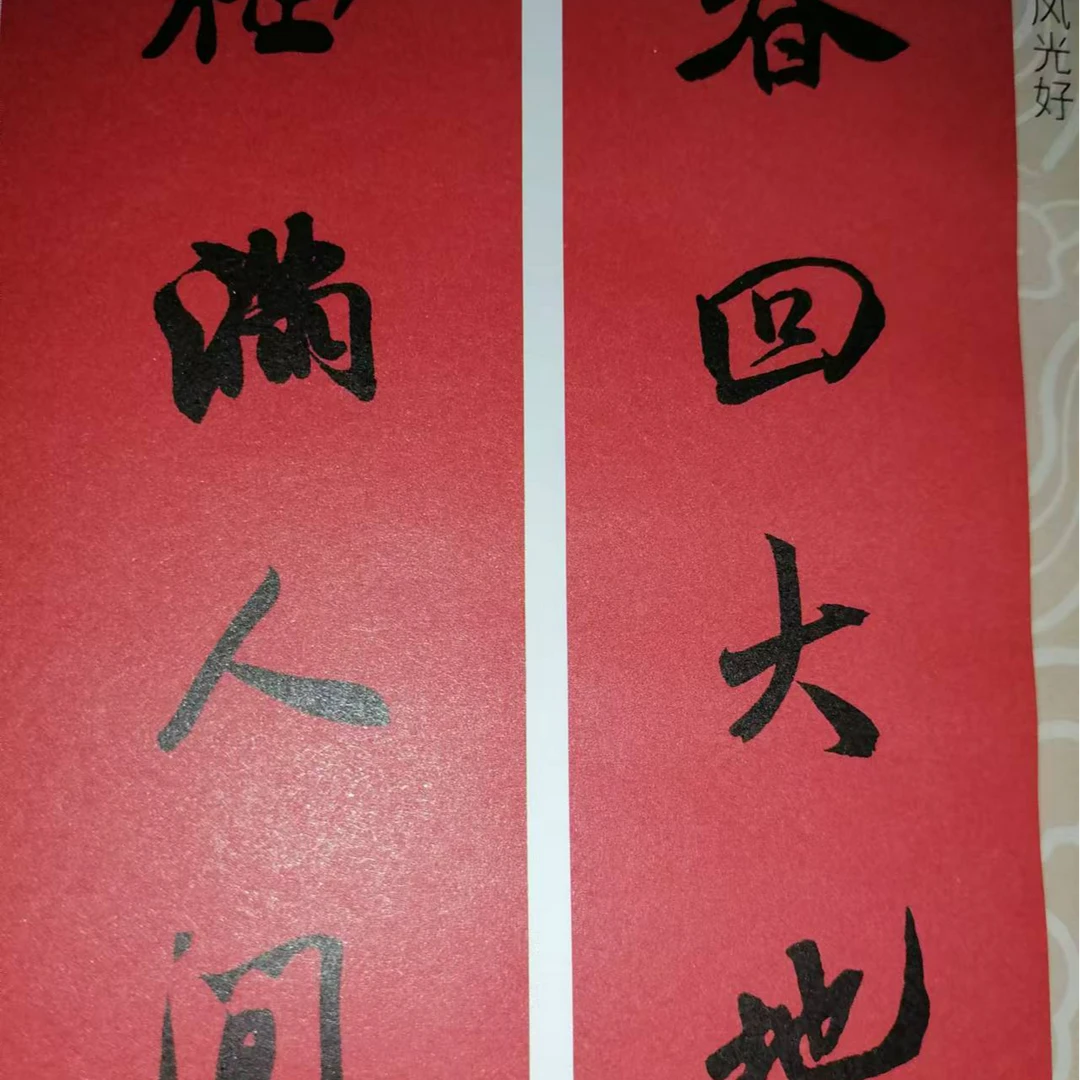 风光好
春回大地
满人间